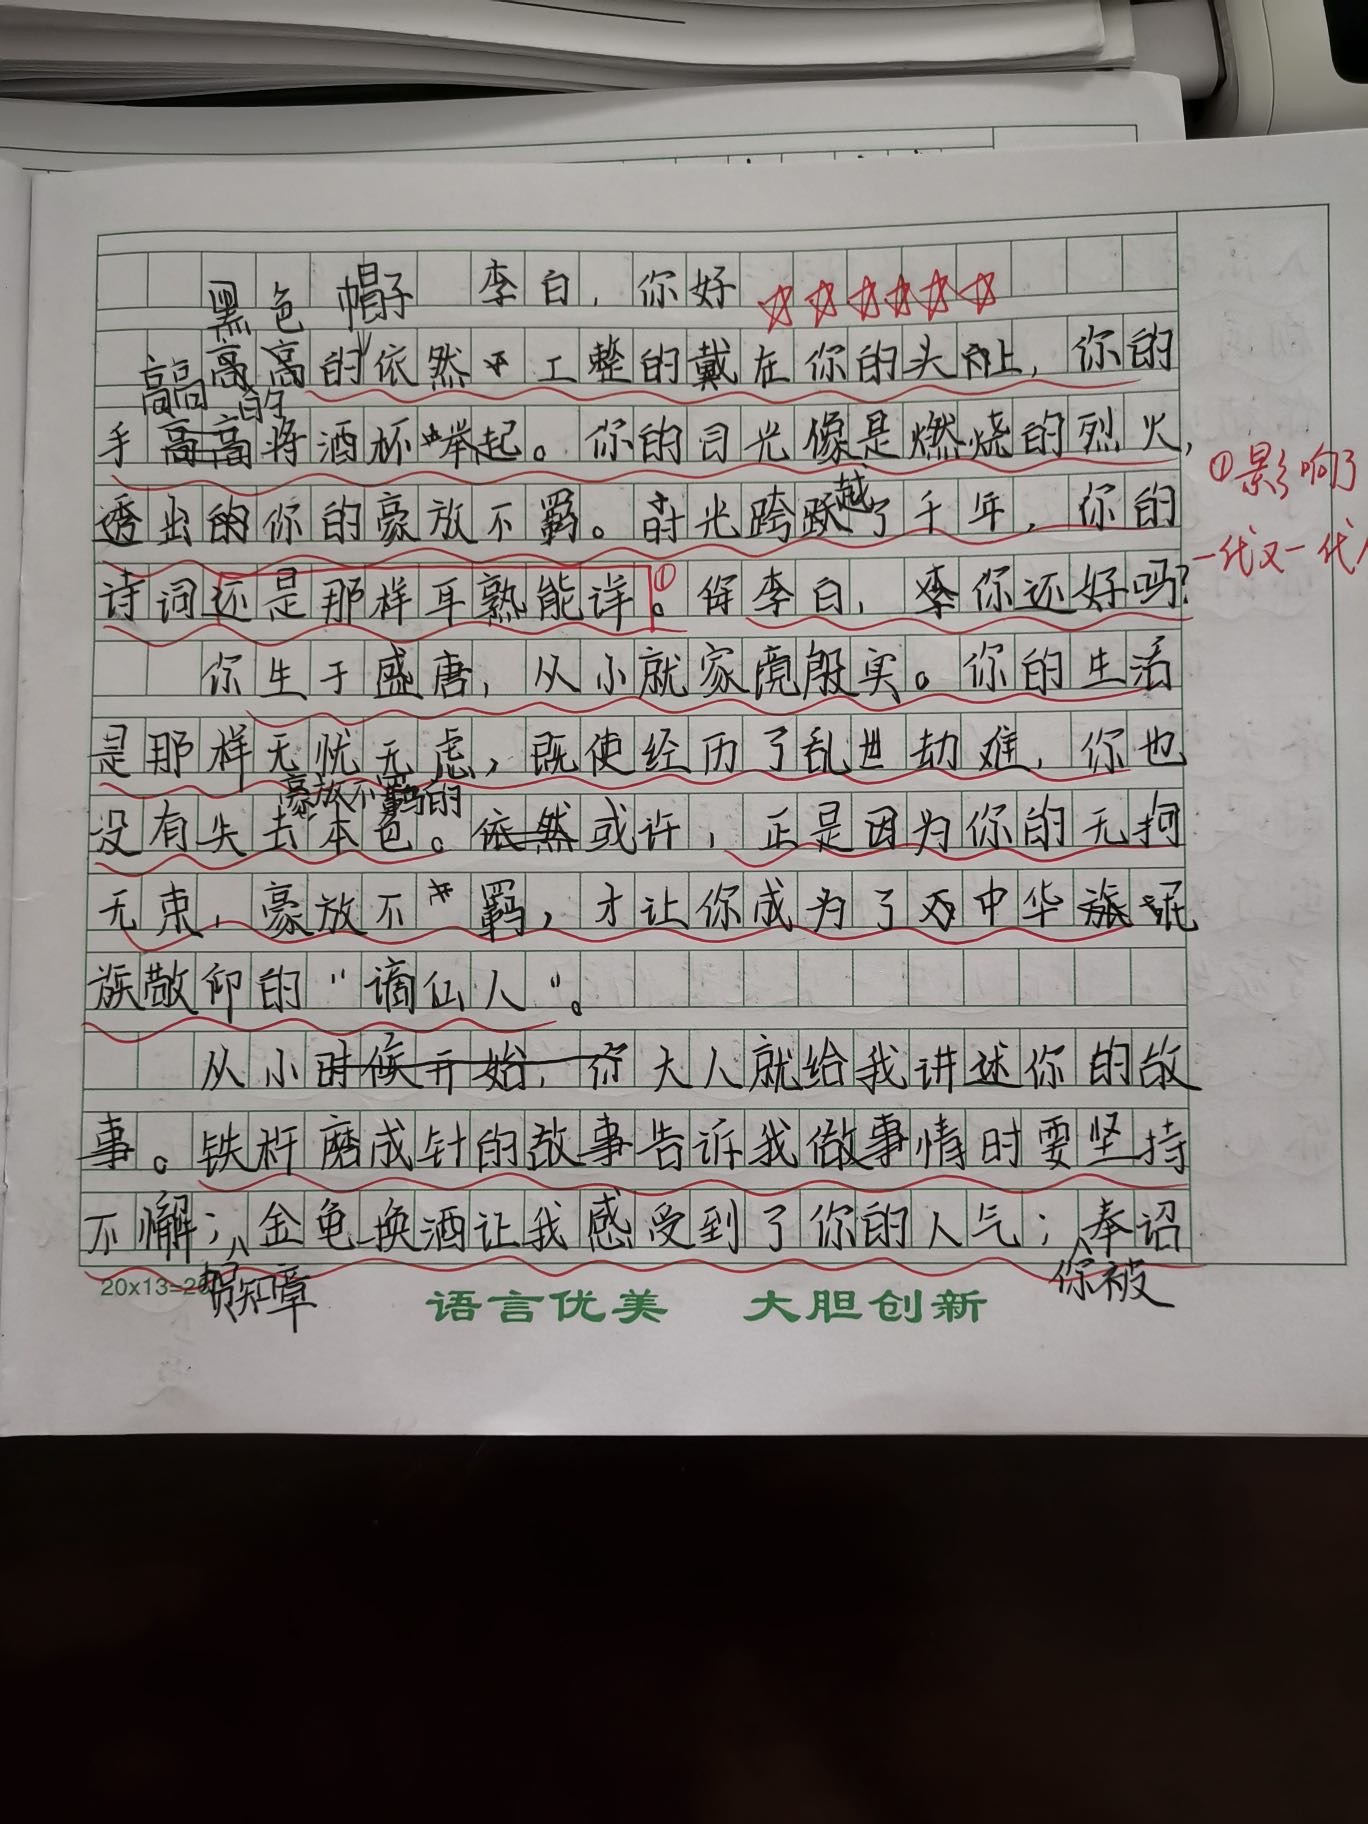 李白，你好
黑色帽子
高高的依然工整的戴在你的头上，你的
高高的
手高高将酒杯举起。你的目光像是燃烧的烈火，
①影响了
越
透出的你的豪放不羁。时光跨跃了千年，你的
一代又一代人
诗词还是那样耳熟能详。①李白，你还好吗？
你生于盛唐，从小就家境殷实。你的生活
是那样无忧无虑，既使经历了乱世劫难，你也
豪放不羁的
没有失去本色。依然或许，正是因为你的无拘
无束，豪放不羁，才让你成为了中华民
族敬仰的“谪仙人”。
从小时候开始，你大人就给我讲述你的故
事。铁杆磨成针的故事告诉我做事情时要坚持
不懈；金龟换酒让我感受到了你的人气；奉诏
20x13=26
贺知章
你被
语言优美 大胆创新